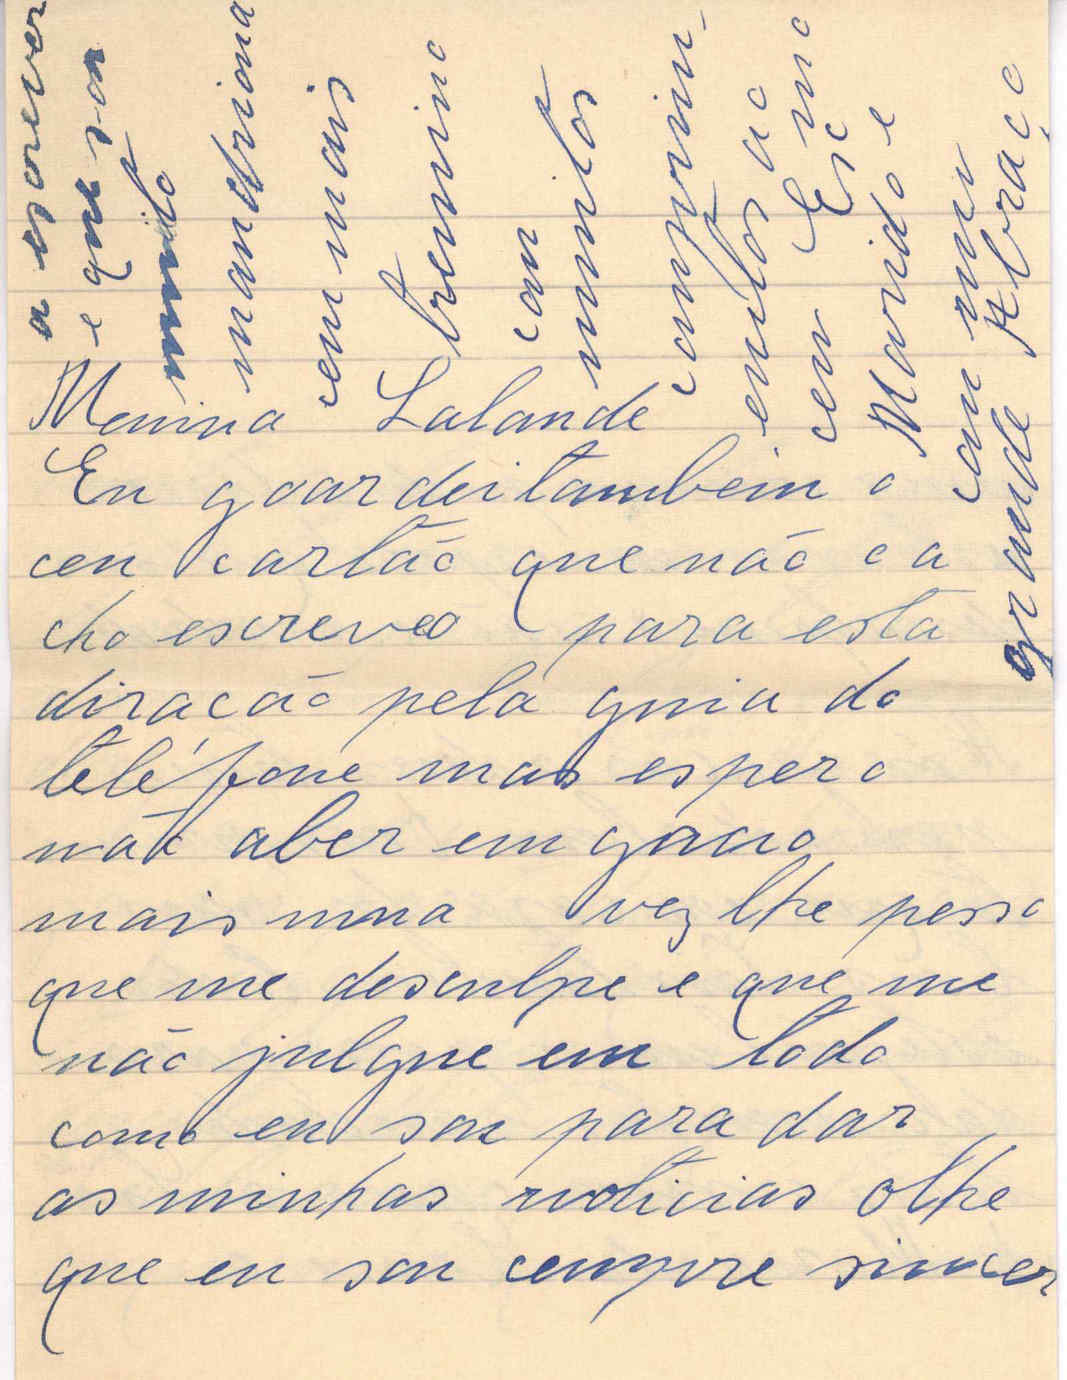 Menina Lalande
Eu goardei tambem o
ceu cartão que não o a
cho escrevo para esta
diracão pela guia do
teléfone mas espero
não aber emgano
mais uma vez lhe pesso
que me desculpe e que me
não julgue em todo
como eu sou para dar
as minhas noticias olhe
que eu sou cempre sincer
a escrever
e que sou
muito
mandriona
cem mais
tremino
com
muitos
comprim-
entos ao
ceu Esmo
Marido e
com um
grande Abraço